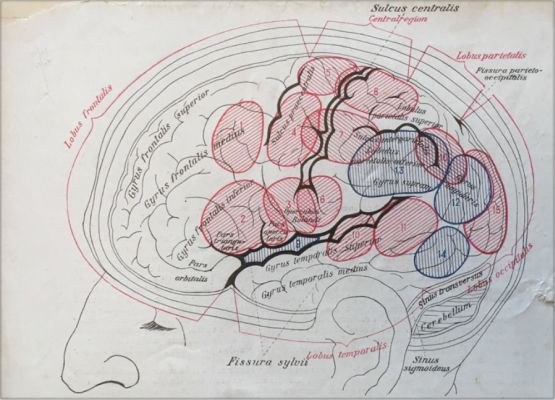 Sulcus centralis
Centralregion
Lobus parietalis
Fissura parieto-
occipitalis
Lobus frontalis
Gyrus frontalis superior
Gyrus frontalis medius
Gyrus frontalis inferior
5
6
4
Lobulus
parietalis superior
2
3
8
Operculum
Rolandi
Pars
triangu-
laris
Pars
orbitalis
9
13
Gyrus supram
12
15
10
11
14
Gyrus temporalis superior
Gyrus temporalis medius
Sinus transversus
Lobus occipitalis
Cerebellum
Fissura sylvii
Lobus temporalis
Sinus
sigmoideus